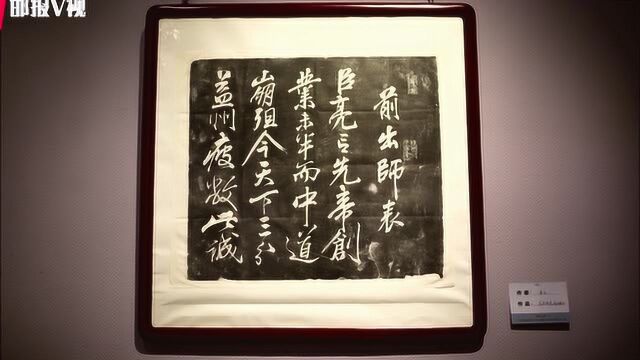 邯报V视
前出師表
臣亮言先帝創
業未半而中道
崩殂今天下三分
益州疲敝此誠
作者：
作品：